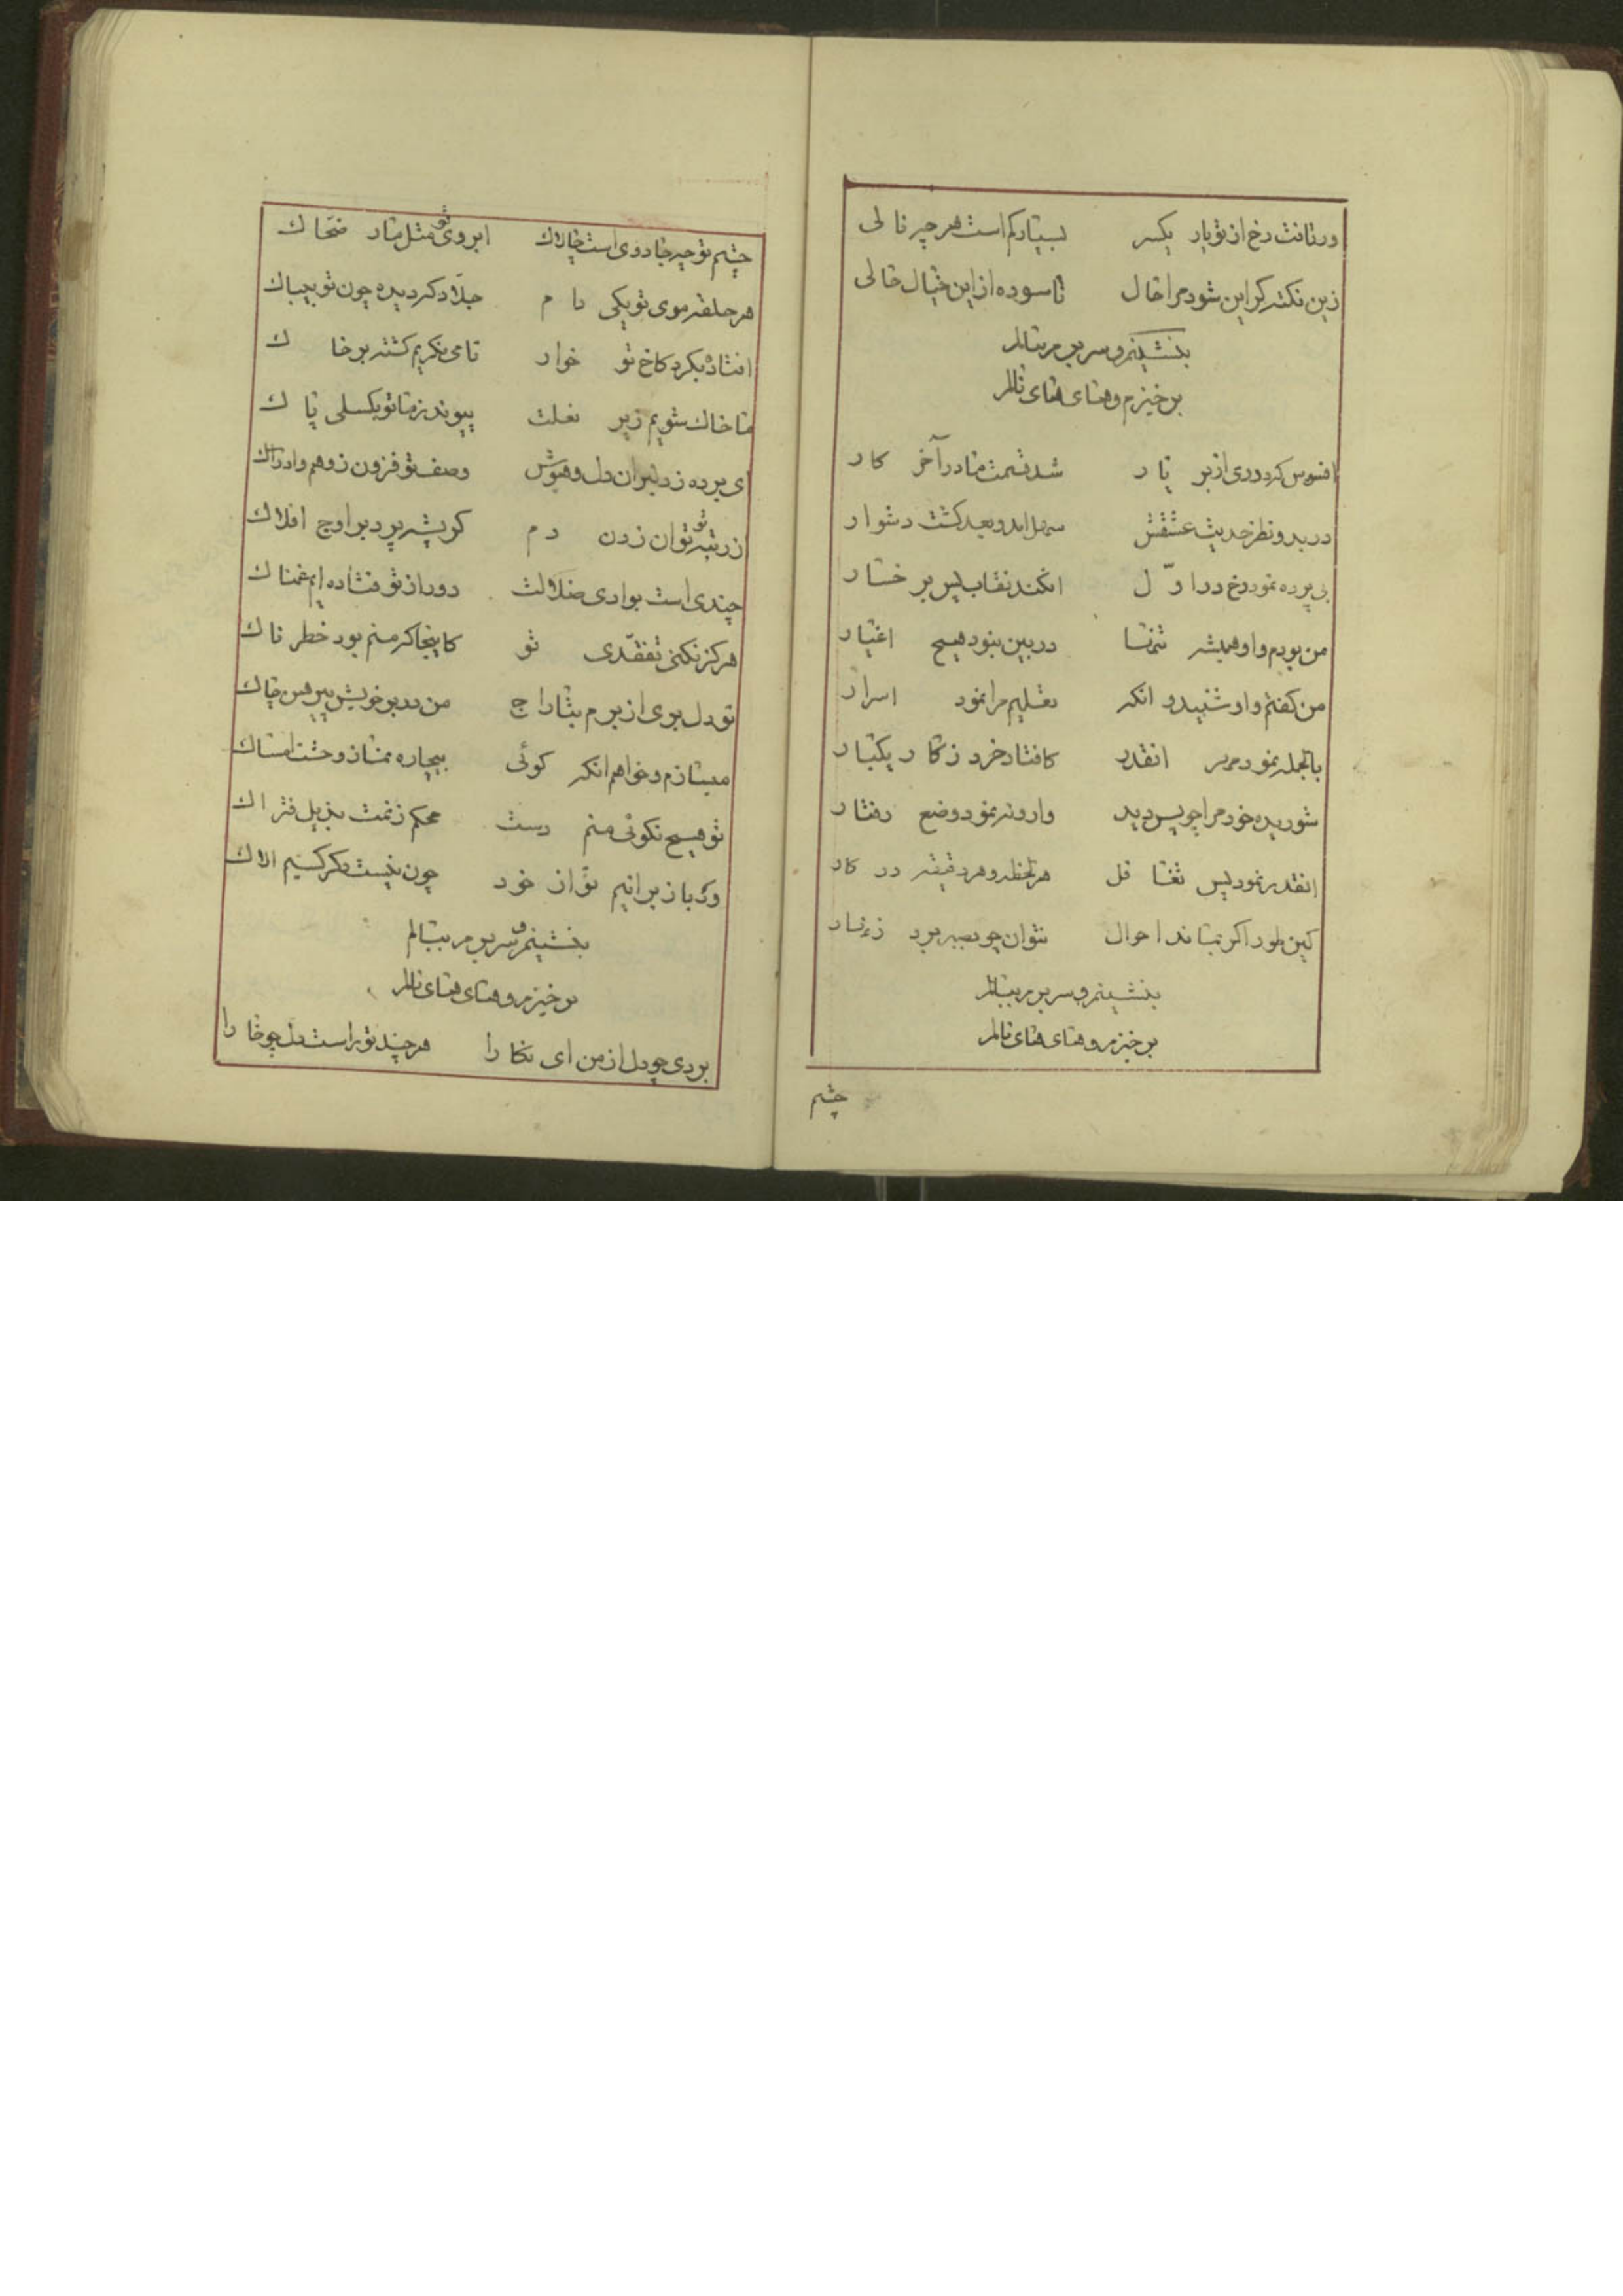 ورتافت رخ از تو یار یکسر بسیار کم است هر چه نالی
زین نکته که این شود مرا حال ناسوده از این خیال خالی
بنشینم و سر بر م بمالم
برخیزم و های های نالم
افسوس که دوری از بر یار شد قسمت ما در آخر کار
در بدو نظر حدیث عشقش سهل امد و بعد کشت دشوار
بی پرده نمود رخ در اوّل افکند نقاب پس بر خسار
من بودم و او همیشه تنها در بین نبود هیچ اغیار
من کفتم و او شنید و انکه تعلیم مرا نمود اسرار
بالجمله نمود مهر انقدر کافتاد خرد ز کار یکبار
شوریده خود مرا چو پس دید وارونه نمود وضع رفتار
انقدر نمود پس تغافل هر لحظه و هر دقیقه در کار
کین طور اکر بماند احوال نتوان چو بسر برد زنهار
بنشینم و سر بر م بمالم
برخیزم و های های نالم
چشم
چشم تو چه جادوی است چالاک ابروی تو مثل مار ضحاک
هر حلقه موی تو یکی دام جلّاد که دیده چون تو بیباک
افتاده بکرد کاخ تو خوار تا می نکریم کشته بر خاک
ما خاک شویم زیر نعلت پیوند ز ما تو بکسلی پاک
ای برده ز دلبران دل و هوش وصف تو فزون ز وهم و ادراک
از رتبه تو توان زدن دم کر پشه پرد بر اوج افلاک
چندی است بوادی ضلالت دور از تو فتاده ایم غمناک
هرکز نکنی تفقّدی تو کاینجا که منم بود خطرناک
تو دل بری از برم بتاراج من در بر خویش پیرهن چاک
میسازم و خواهم انکه کوئی بیچاره بساز وحشت امساک
تو هیچ نکوئی منم دست محکم زنمت بذیل فتراک
ور باز برانیم تو از خود چون نیست دکر کسیم الاک
بنشینم و سر بر م بمالم
برخیزم و های های نالم
بردی چو دل از من ای نکارا هر چند تو راست دل چو خارا